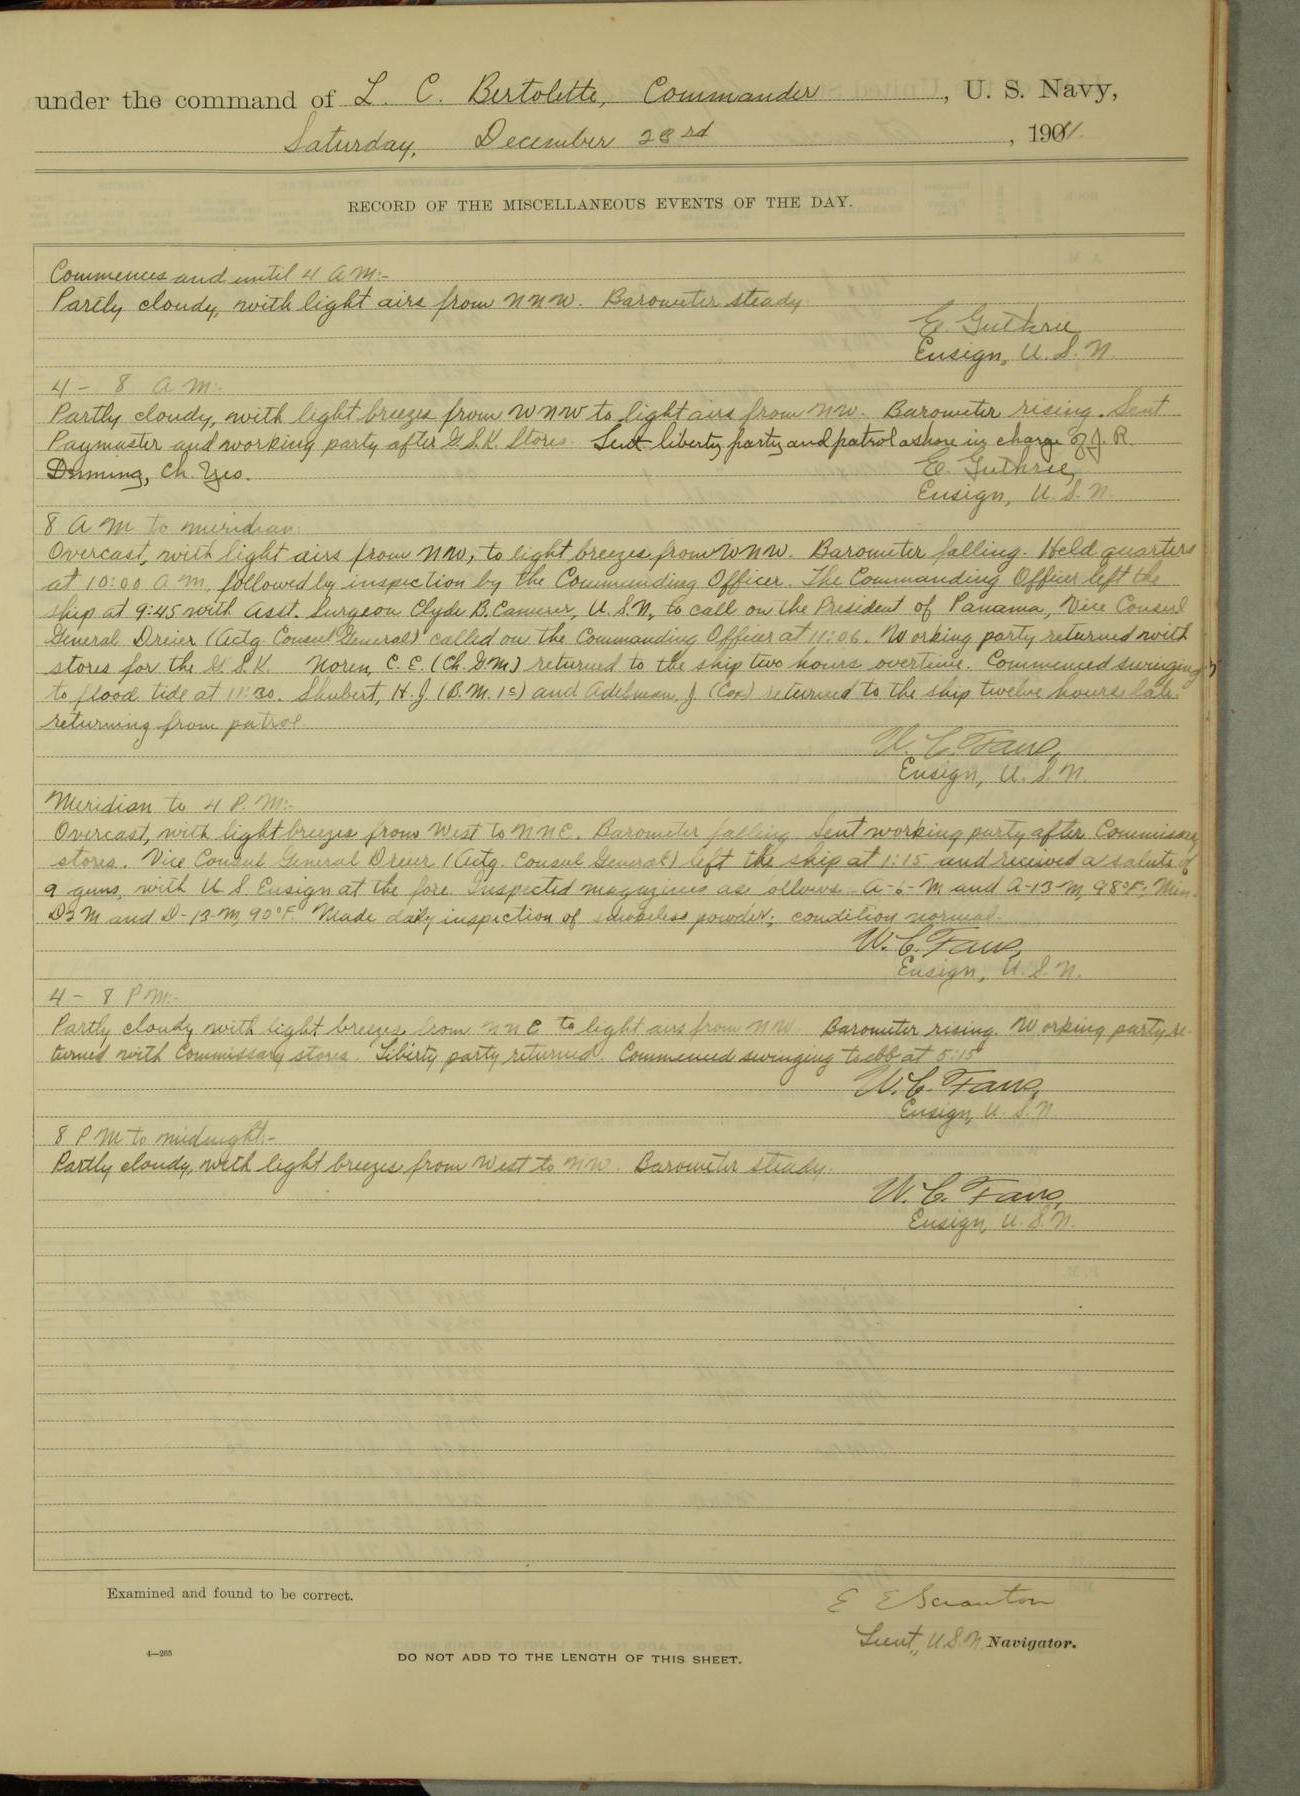 under the command of L. C. Bertolette, Commander, U. S. Navy,
Saturday, December 23rd, 1911.
RECORD OF THE MISCELLANEOUS EVENTS OF THE DAY.
Commences and until 4 A M:-
Partly cloudy, with light airs from NNW. Barometer steady.
E. Guthrie
Ensign, U. S. N.
4 - 8 A M:-
Partly cloudy, with light breezes from WNW to light airs from NW. Barometer rising. Sent
Paymaster and working party after G.S.K. Stores. Sent liberty party and patrol ashore in charge of J. R.
Ch. Yeo.
E. Guthrie,
Ensign, U. S. N.
8 A M to meridian:
Overcast, with light airs from NW, to light breezes from WNW. Barometer falling. Held quarters
at 10:00 A M, followed by inspection by the Commanding Officer. The Commanding Officer left the
ship at 9:45 with Asst. Surgeon Clyde B. Camerer, U. S. N, to call on the President of Panama, Vice Consul
General Dreier (Actg. Consul General) called on the Commanding Officer at 11:06. Working party returned with
stores for the G.S.K. Noren, C. E. (Ch. G.M.) returned to the ship two hours overtime. Commenced swinging
to flood tide at 11:30. Shubert, H. J. (B.M. 1c) and Adelman, J. (Cox) returned to the ship twelve hours late
returning from patrol.
W. C. Faus,
Ensign, U. S. N.
Meridian to 4 P. M:-
Overcast, with light breezes from West to NNE. Barometer falling. Sent working party after Commissary
stores. Vice Consul General Dreier (Actg. Consul General) left the ship at 1:15 and received a salute of
9 guns, with U S. Ensign at the fore. Inspected magazines as follows:- A-6-M and A-13-M, 98°F; Min.
and D-13-M, 90°F. Made daily inspection of smokeless powder; condition normal.
W. C. Faus,
Ensign, U. S. N.
4 - 8 P M:-
Partly cloudy with light breezes from NNE to light airs from NW. Barometer rising. Working party re-
turned with Commissary stores. Liberty party returned. Commenced swinging to ebb at 5:15
W. C. Faus,
Ensign, U. S. N.
8 P M to midnight:-
Partly cloudy, with light breezes from West to NW. Barometer steady.
W. C. Faus,
Ensign, U. S. N.
Examined and found to be correct.
E E Scranton
Lieut., U.S.N. Navigator.
4—265
DO NOT ADD TO THE LENGTH OF THIS SHEET.